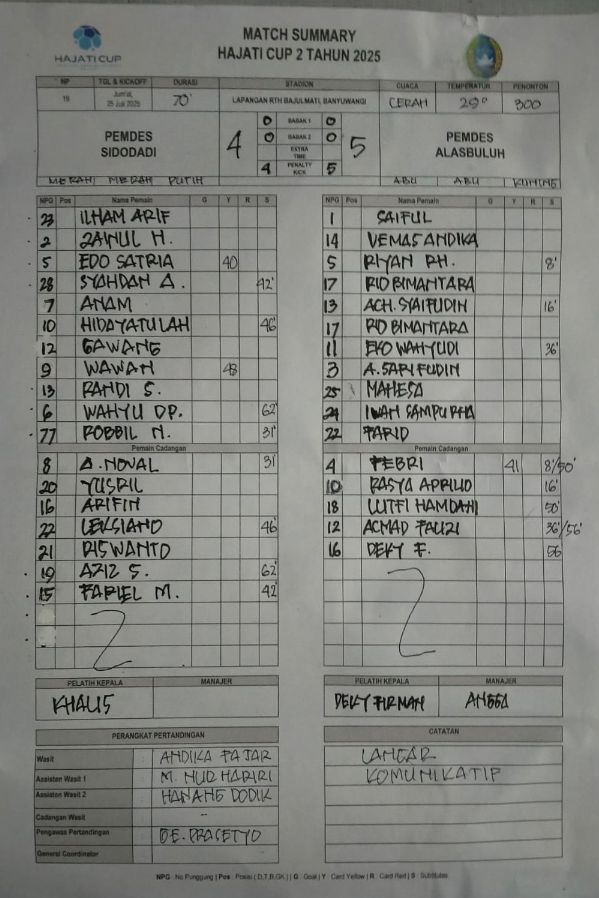 HAJATI CUP
MATCH SUMMARY
HAJATI CUP 2 TAHUN 2025
NP TGL & KICKOFF DURASI STADION CUACA TEMPERATUR PENONTON
19 Jum'at, 25 Juli 2025 70' LAPANGAN RTH BAJULMATI, BANYUWANGI CERAH 29° 300
PEMDES SIDODADI 4 5 PEMDES ALASBULUH
0 BABAK 1 0
0 BABAK 2 0
EXTRA TIME
4 PENALTY KICK 5
MERAH MERAH PUTIH ABU ABU KUNING
NPG Pos Nama Pemain G Y R S
23 ILHAM ARIF
2 ZAINUL H.
5 EDO SATRIA 40
28 SYAHDAN A. 42'
7 ANAM
10 HIDAYATULAH 46'
12 GAWANG
9 WAWAN 48
13 RANDI S.
6 WAHYU DP. 62'
77 ROBBIL N. 31'
Pemain Cadangan
8 A. NOVAL 31'
20 YUSRIL
16 ARIFIN
22 LEKSIANO 46'
21 RISWANTO
19 AZIZ S. 62'
15 FARIEL M. 42'
NPG Pos Nama Pemain G Y R S
1 SAIFUL
14 VEMAS ANDIKA
5 RIYAN RH. 8'
17 RIO BIMANTARA
13 ACH. SYAIFUDIN 16'
17 RIO BIMANTARA
11 EKO WAHYUDI 36'
3 A. SARIFUDIN
25 MAHESA
24 IWAN SAMPURNA
22 FARID
Pemain Cadangan
4 FEBRI 41 8'/50'
10 RASYA APRILIO 16'
18 LUTFI HAMDANI 50'
12 ACMAD FAUZI 36'/56'
16 DEKY F. 56
PELATIH KEPALA MANAJER
KHALIS
PELATIH KEPALA MANAJER
DEKY FIRMAN ANGGA
PERANGKAT PERTANDINGAN
Wasit ANDIKA FAJAR
Assisten Wasit 1 M. NUR HARIRI
Assisten Wasit 2 HANANG DODIK
Cadangan Wasit -
Pengawas Pertandingan DE. PRASETYO
General Coordinator
CATATAN
LANCAR
KOMUNIKATIF
NPG : No Punggung | Pos : Posisi ( D,T,B,GK ) | G : Goal | Y : Card Yellow | R : Card Red | S : Subtitutes